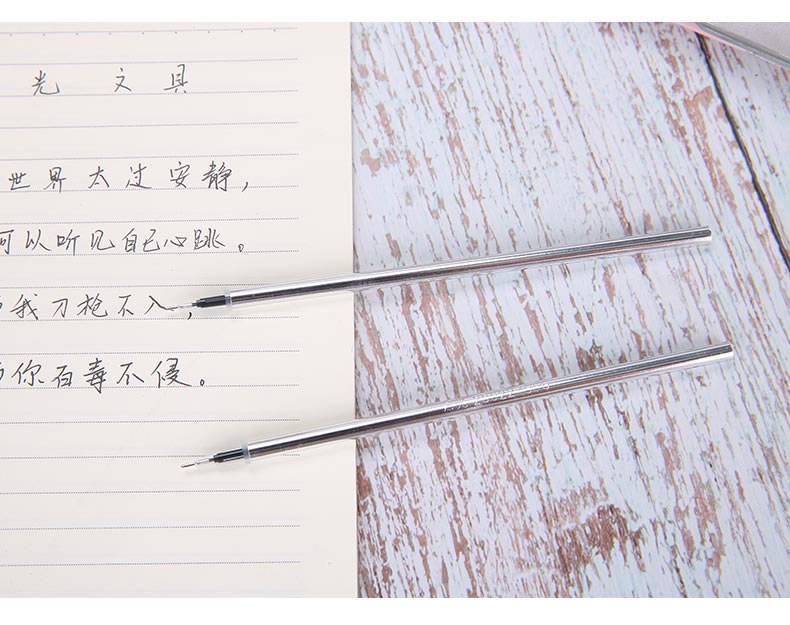 光 文具
世界太过安静,
可以听见自己心跳。
我刀枪不入,
你百毒不侵。